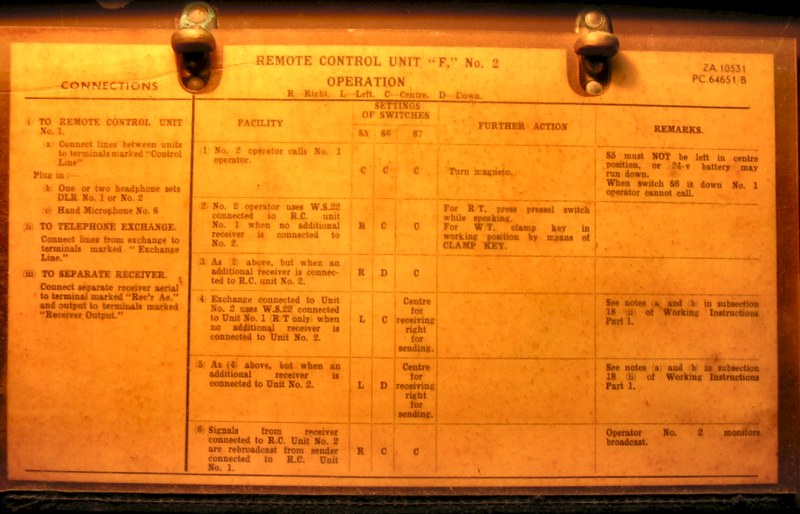 REMOTE CONTROL UNIT "F," No. 2
ZA.10531
PC.64651/B
OPERATION
R—Right. L—Left. C—Centre. D—Down.
CONNECTIONS
(i) TO REMOTE CONTROL UNIT
No. 1.
(a) Connect lines between units
to terminals marked "Control
Line"
Plug in:—
(b) One or two headphone sets
DLR No. 1 or No. 2
(c) Hand Microphone No. 8
(ii) TO TELEPHONE EXCHANGE.
Connect lines from exchange to
terminals marked "Exchange
Line."
(iii) TO SEPARATE RECEIVER.
Connect separate receiver aerial
to terminal marked "Rec'r Ae."
and output to terminals marked
"Receiver Output."
FACILITY
SETTINGS
OF SWITCHES
S5 S6 S7
FURTHER ACTION
REMARKS.
(1) No. 2 operator calls No. 1
operator.
C C C
Turn magneto.
S5 must NOT be left in centre
position, or 24-v battery may
run down.
When switch S6 is down No. 1
operator cannot call.
(2) No. 2 operator uses W.S.22
connected to R.C. unit
No. 1 when no additional
receiver is connected to
No. 2.
R C C
For R/T, press pressel switch
while speaking.
For W/T, clamp key in
working position by means of
CLAMP KEY.
(3) As (2) above, but when an
additional receiver is connec-
ted to R.C. unit No. 2.
R D C
(4) Exchange connected to Unit
No. 2 uses W.S.22 connected
to Unit No. 1 (R/T only) when
no additional receiver is
connected to Unit No. 2.
L C
Centre
for
receiving
right
for
sending.
See notes (a) and (b) in subsection
18 (ii) of Working Instructions
Part 1.
(5) As (4) above, but when an
additional receiver is
connected to Unit No. 2.
L D
Centre
for
receiving
right
for
sending.
See notes (a) and (b) in subsection
18 (ii) of Working Instructions
Part 1.
(6) Signals from receiver
connected to R.C. Unit No. 2
are rebroadcast from sender
connected to R.C. Unit
No. 1.
R C C
Operator No. 2 monitors
broadcast.